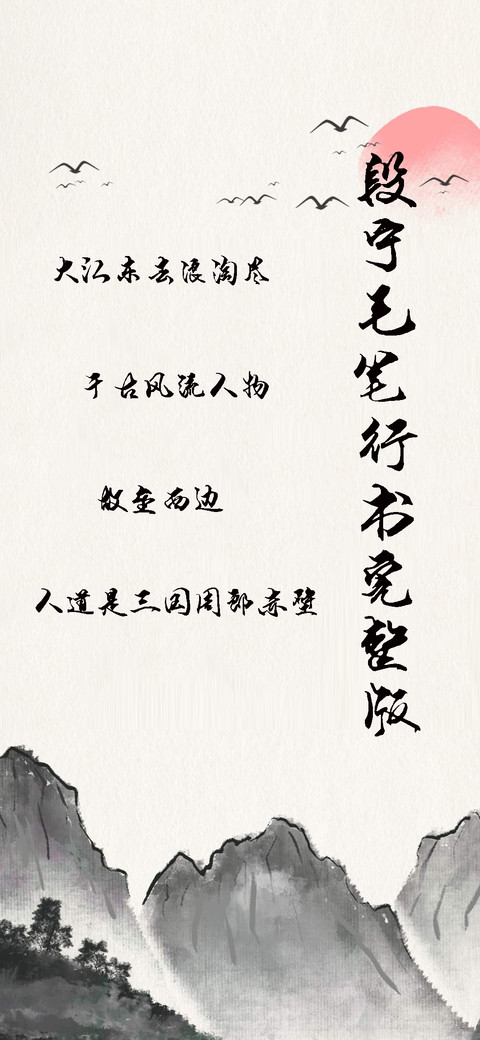 段宁毛笔行书完整版
大江东去浪淘尽
千古风流人物
故垒西边
人道是三国周郎赤壁